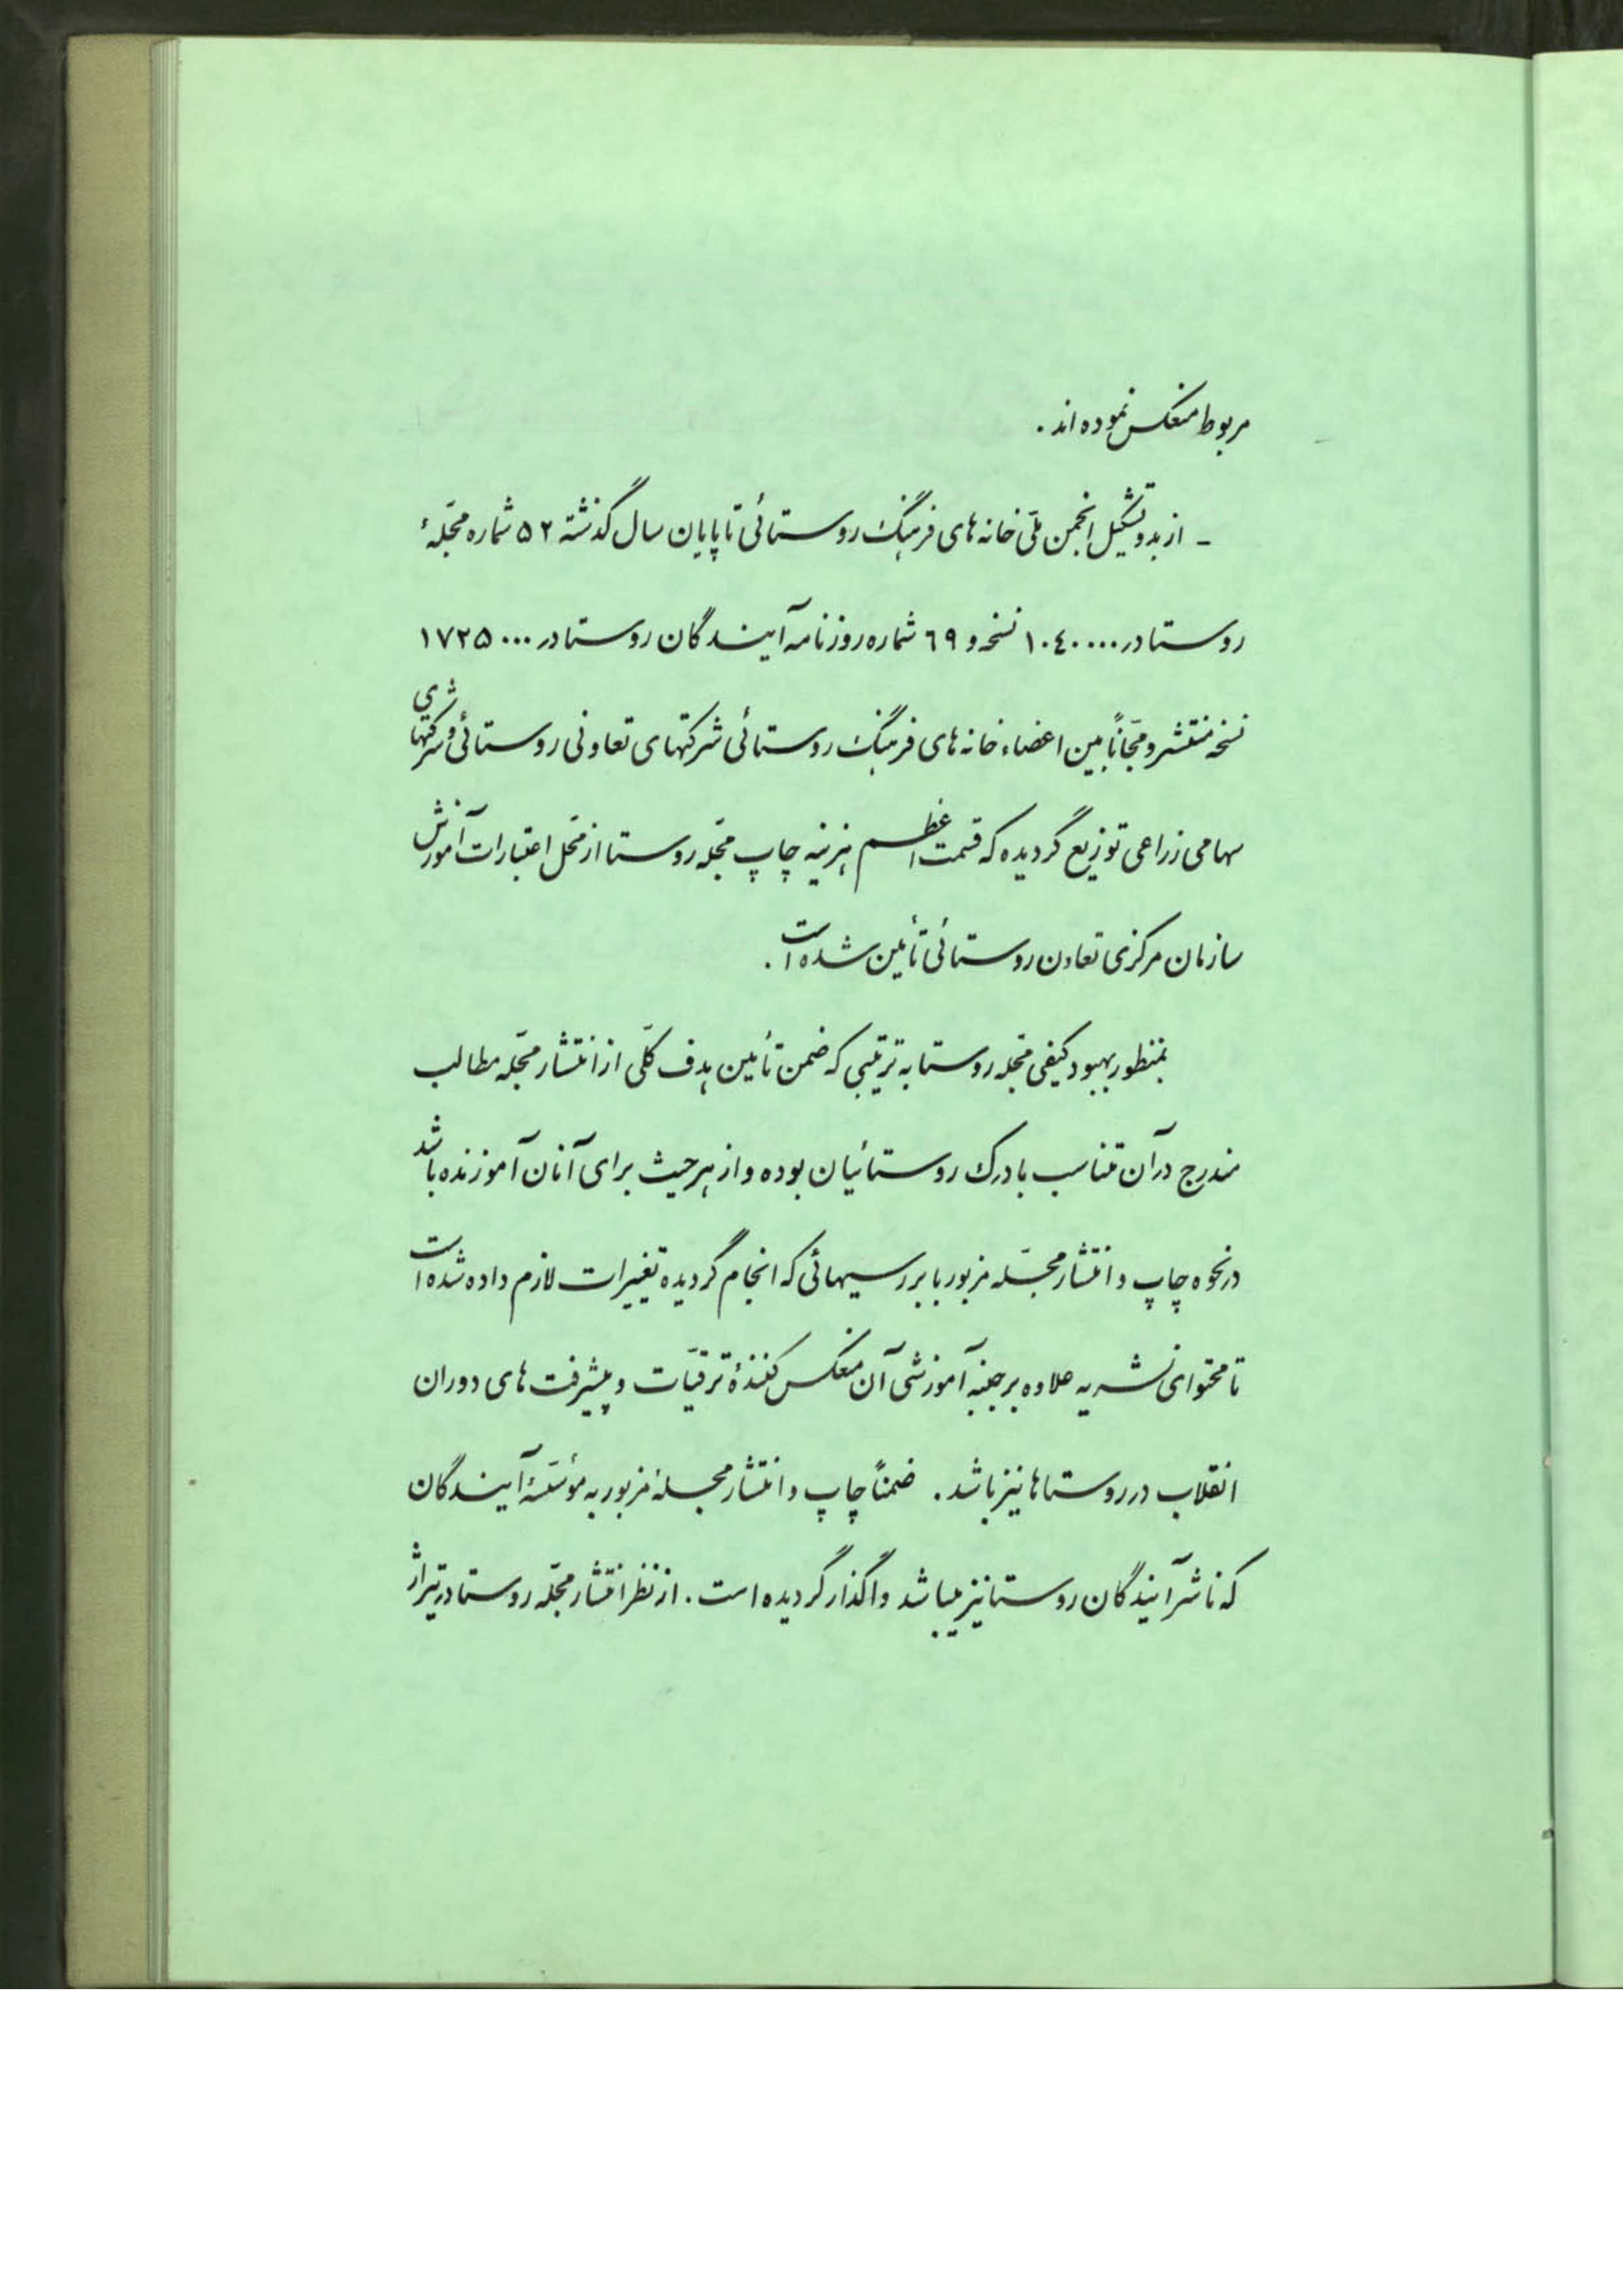 مربوط منعکس نموده اند .
ـ از بدو تشکیل انجمن ملّی خانه های فرهنگ روستائی تا پایان سال گذشته ۵۲ شماره مجّلۀ
روستا در ۱۰۴۰۰۰۰ نسخه و ۶۹ شماره روزنامه آیندگان روستا در ۱۷۲۵۰۰۰
نسخه منتشر و مجّاناً بین اعضاء خانه های فرهنگ روستائی شرکتهای تعاونی روستائی و شرکتهای
سهامی زراعی توزیع گردیده که قسمت اعظم هزینه چاپ مجّله روستا از محّل اعتبارات آموزش
سازمان مرکزی تعاون روستائی تأمین شده است .
بمنظور بهبود کیفی مجّله روستا به ترتیبی که ضمن تأمین هدف کلّی از انتشار مجّله مطالب
مندرج در آن متناسب با درک روستائیان بوده و از هر حیث برای آنان آموزنده باشد
در نحوه چاپ و انتشار مجّله مزبور با بررسیهائی که انجام گردیده تغییرات لازم داده شده است
تا محتوای نشریه علاوه بر جنبه آموزشی آن منعکس کنندۀ ترقیّات و پیشرفت های دوران
انقلاب در روستاها نیز باشد . ضمناً چاپ و انتشار مجلۀ مزبور به مؤسّسۀ آیندگان
که ناشر آیندگان روستا نیز میباشد واگذار گردیده است . از نظر انتشار مجّله روستا در تیراژ